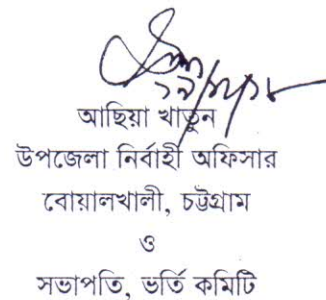 আছিয়া খাতুন
উপজেলা নির্বাহী অফিসার
বোয়ালখালী, চট্টগ্রাম
ও
সভাপতি, ভর্তি কমিটি